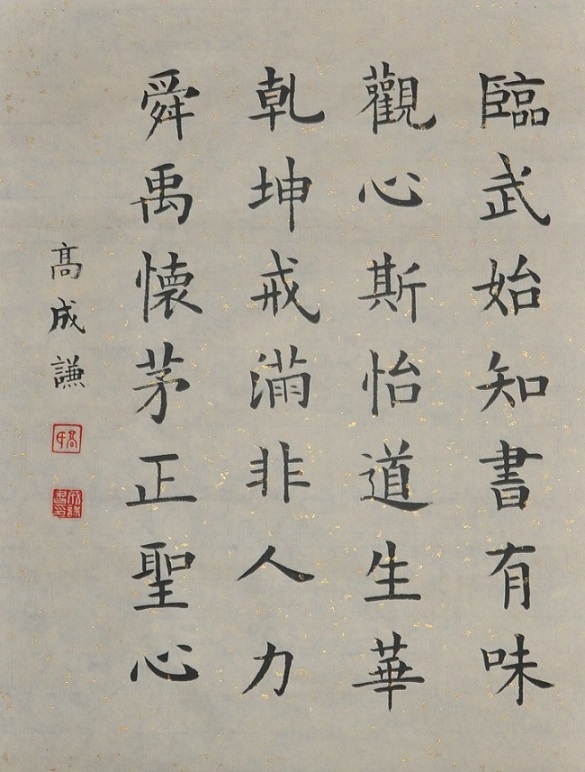 臨武始知書有味
觀心斯怡道生華
乾坤戒滿非人力
舜禹懷茅正聖心
高成謙